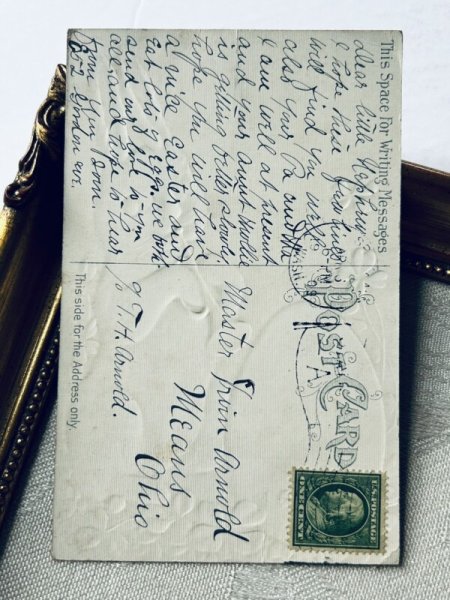 This Space For Writing Messages
dear little Nephew
I hope this few lines
will find you well
also your Pa and Ma
I am well at present
and your aunt Mollie
is getting better slowly
hope you will have
a nice Easter and
eat lots of eggs. we both
send our love to you
all and hope to hear
from you soon.
POST CARD
Master Irvin Arnold
Means
Ohio
℅ T. H. Arnold.
This side for the Address only.
U.S. POSTAGE
ONE CENT